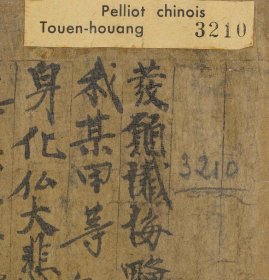 Pelliot chinois
Touen-houang 3210
3210
發願懺悔
我某甲等
身化仏大悲